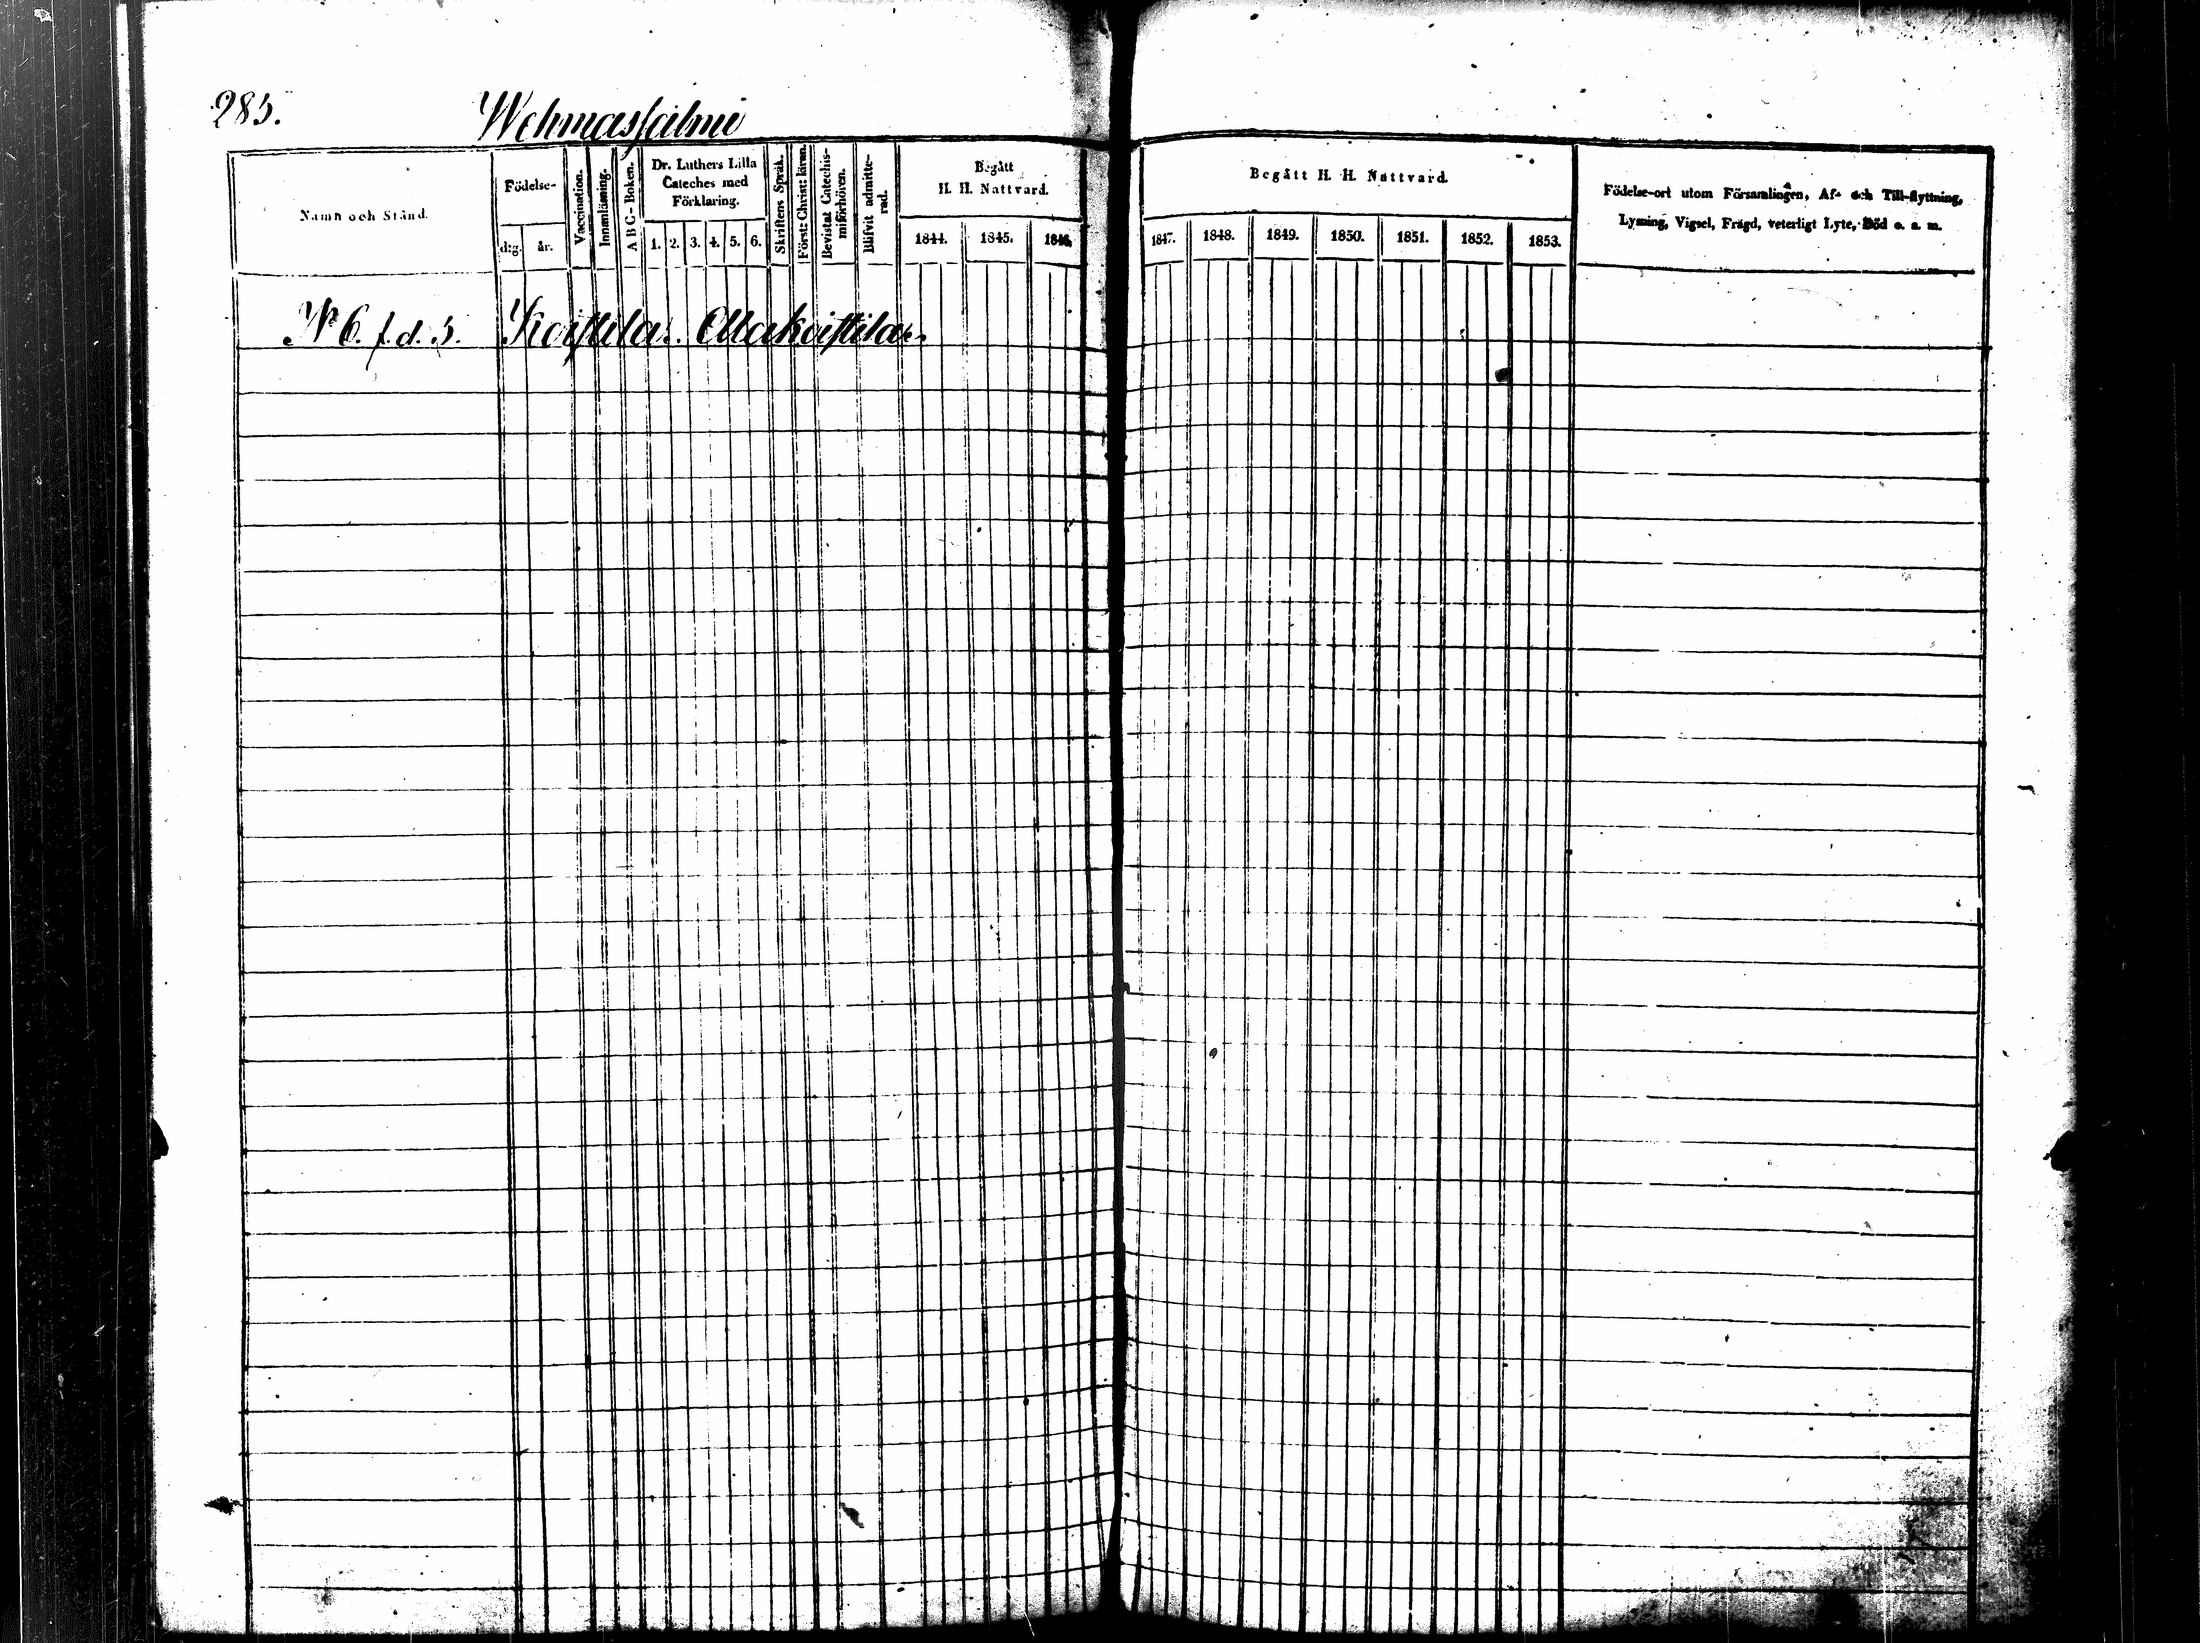 285. Wehmassalmi
Namn och Stånd.
Födelse-
dag. år.
Vaccination.
Innanläsning.
A B C - Boken.
Dr. Luthers Lilla
Cateches med
Förklaring.
1. 2. 3. 4. 5. 6.
Skriftens Språk.
Först: Christ: läran.
Bevistat Catechis-
miförhören.
Blifvit admitte-
rad.
Begått
H. H. Nattvard.
1844. 1845. 1846.
Begått H. H. Nattvard.
1847. 1848. 1849. 1850. 1851. 1852. 1853.
Födelse-ort utom Församlingen, Af- och Till-flyttning,
Lysning, Vigsel, Frägd, veterligt Lyte, Död o. s. m.
No 6. f. d. 5. Koistila.